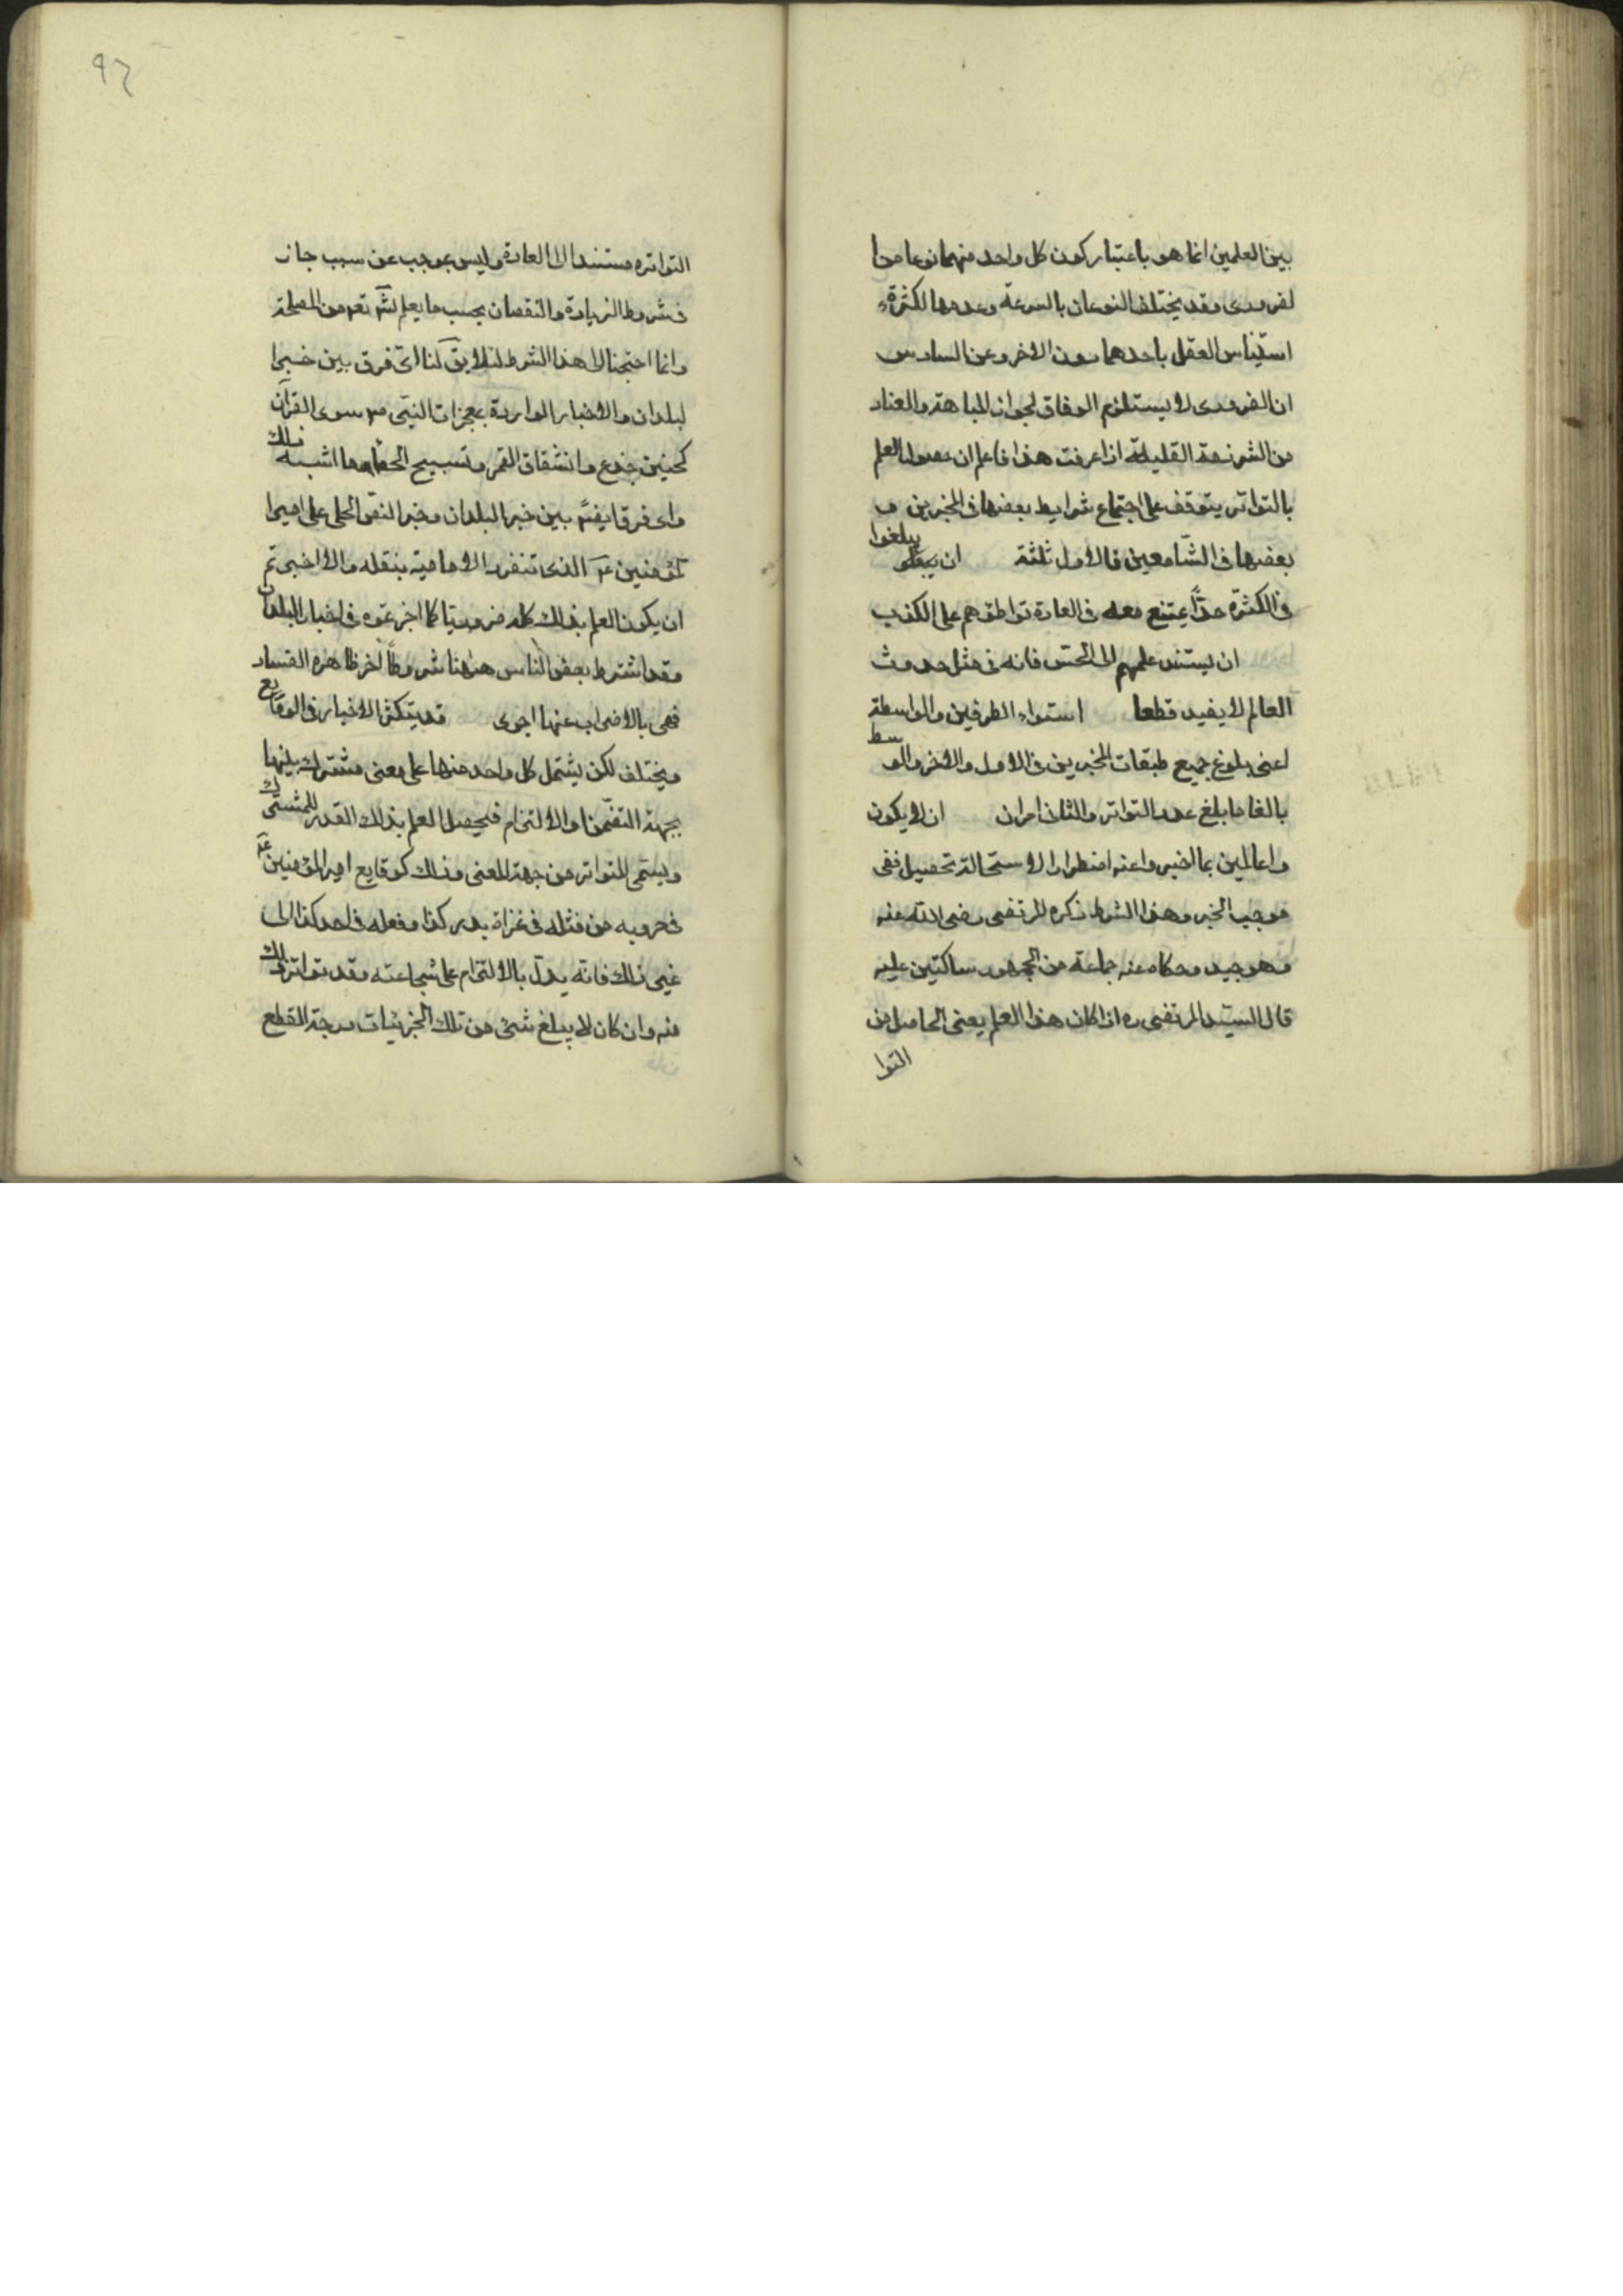 بين العلمين انما هو باعتبار كون كل واحد منهما نوعا من ا
لضرورى وقد يختلف النوعان بالسرعة وعدمها لكثرة
استيناس العقل باحدهما دون الاخر وعن السادس
ان الضرورى لا يستلزم الوفاق لجواز المباهتة والعناد
من الشرذمة القليلة اذا عرفت هذا فاعلم ان حصول العلم
بالتواتر يتوقف على اجتماع شرايط بعضها فى المخبرين و
بعضها فى السّامعين فالاول ثلثة ان يبلغوا
فى الكثرة حدّا يمتنع معه فى العادة تواطؤهم على الكذب
ان يستند علمهم الى الحسّ فانه فى مثل حدوث
العالم لا يفيد قطعا استواء الطرفين والواسطة
اعنى بلوغ جميع طبقات المخبرين فى الاول والاخر والوسط
بالغا ما بلغ عدد التواتر والثانى امران ان لا يكون
واعالمين بما اخبر واعنه اضطرارا لاستحالة تحصيل
موجب الخبر وهذا الشرط ذكره المرتضى رضى الله عنه
وهو جيد وحكاه عنه جماعة من الجمهور ساكتين عليه
قال السيّد المرتضى ره اذا كان هذا العلم يعنى الحاصل من
التوا
٩٦
التواتر مستندا الى العادة وليس بموجب عن سبب جاز
فى شروط الزيادة والنقصان بحسب ما يعلم الله تعم من المصلحة
وانما احتجنا الى هذا الشرط لئلا يق لنا اىّ فرق بين خبر ا
لبلدان والاخبار الواردة بمعجزات النبّى ص سوى القرآن
كحنين جذع وانشقاق القمر وتسبيح الحصا وما اشبه ذلك
واى فرق ايضًا بين خبر البلدان وخبر النص الجلى على امير ا
لمؤمنين ع الذى تنفرد الامامية بنقله والا اجزتم
ان يكون العلم بذلك كله ضروريّا كما اجزتموه فى اخبار البلدان
وقد اشترط بعض الناس هنا شروطًا اخر ظاهرة الفساد
فهى بالاضراب عنها اجرى قد يتكثر الاخبار فى الوقايع
ويختلف لكن يشتمل كل واحد منها على معنى مشترك بينها
بجهة التضمّن او الالتزام فيحصل العلم بذلك القدر المشترك
ويسمّى المتواتر من جهة المعنى وذلك كوقايع امير المؤمنين ع
فى حروبه من قتله فى غزاة بدر كذا وفعله فى احد كذا الى
غير ذلك فانّه يدلّ بالالتزام على شجاعته وقد تواتر ذلك
منه وان كان لا يبلغ شئ من تلك الجزئيات درجة القطع